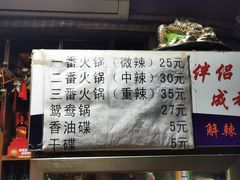 一番火锅（微辣）25元
二番火锅（中辣）30元
三番火锅（重辣）35元
鸳鸯锅 27元
香油碟 5元
干碟 5元
伴侣
成
解辣